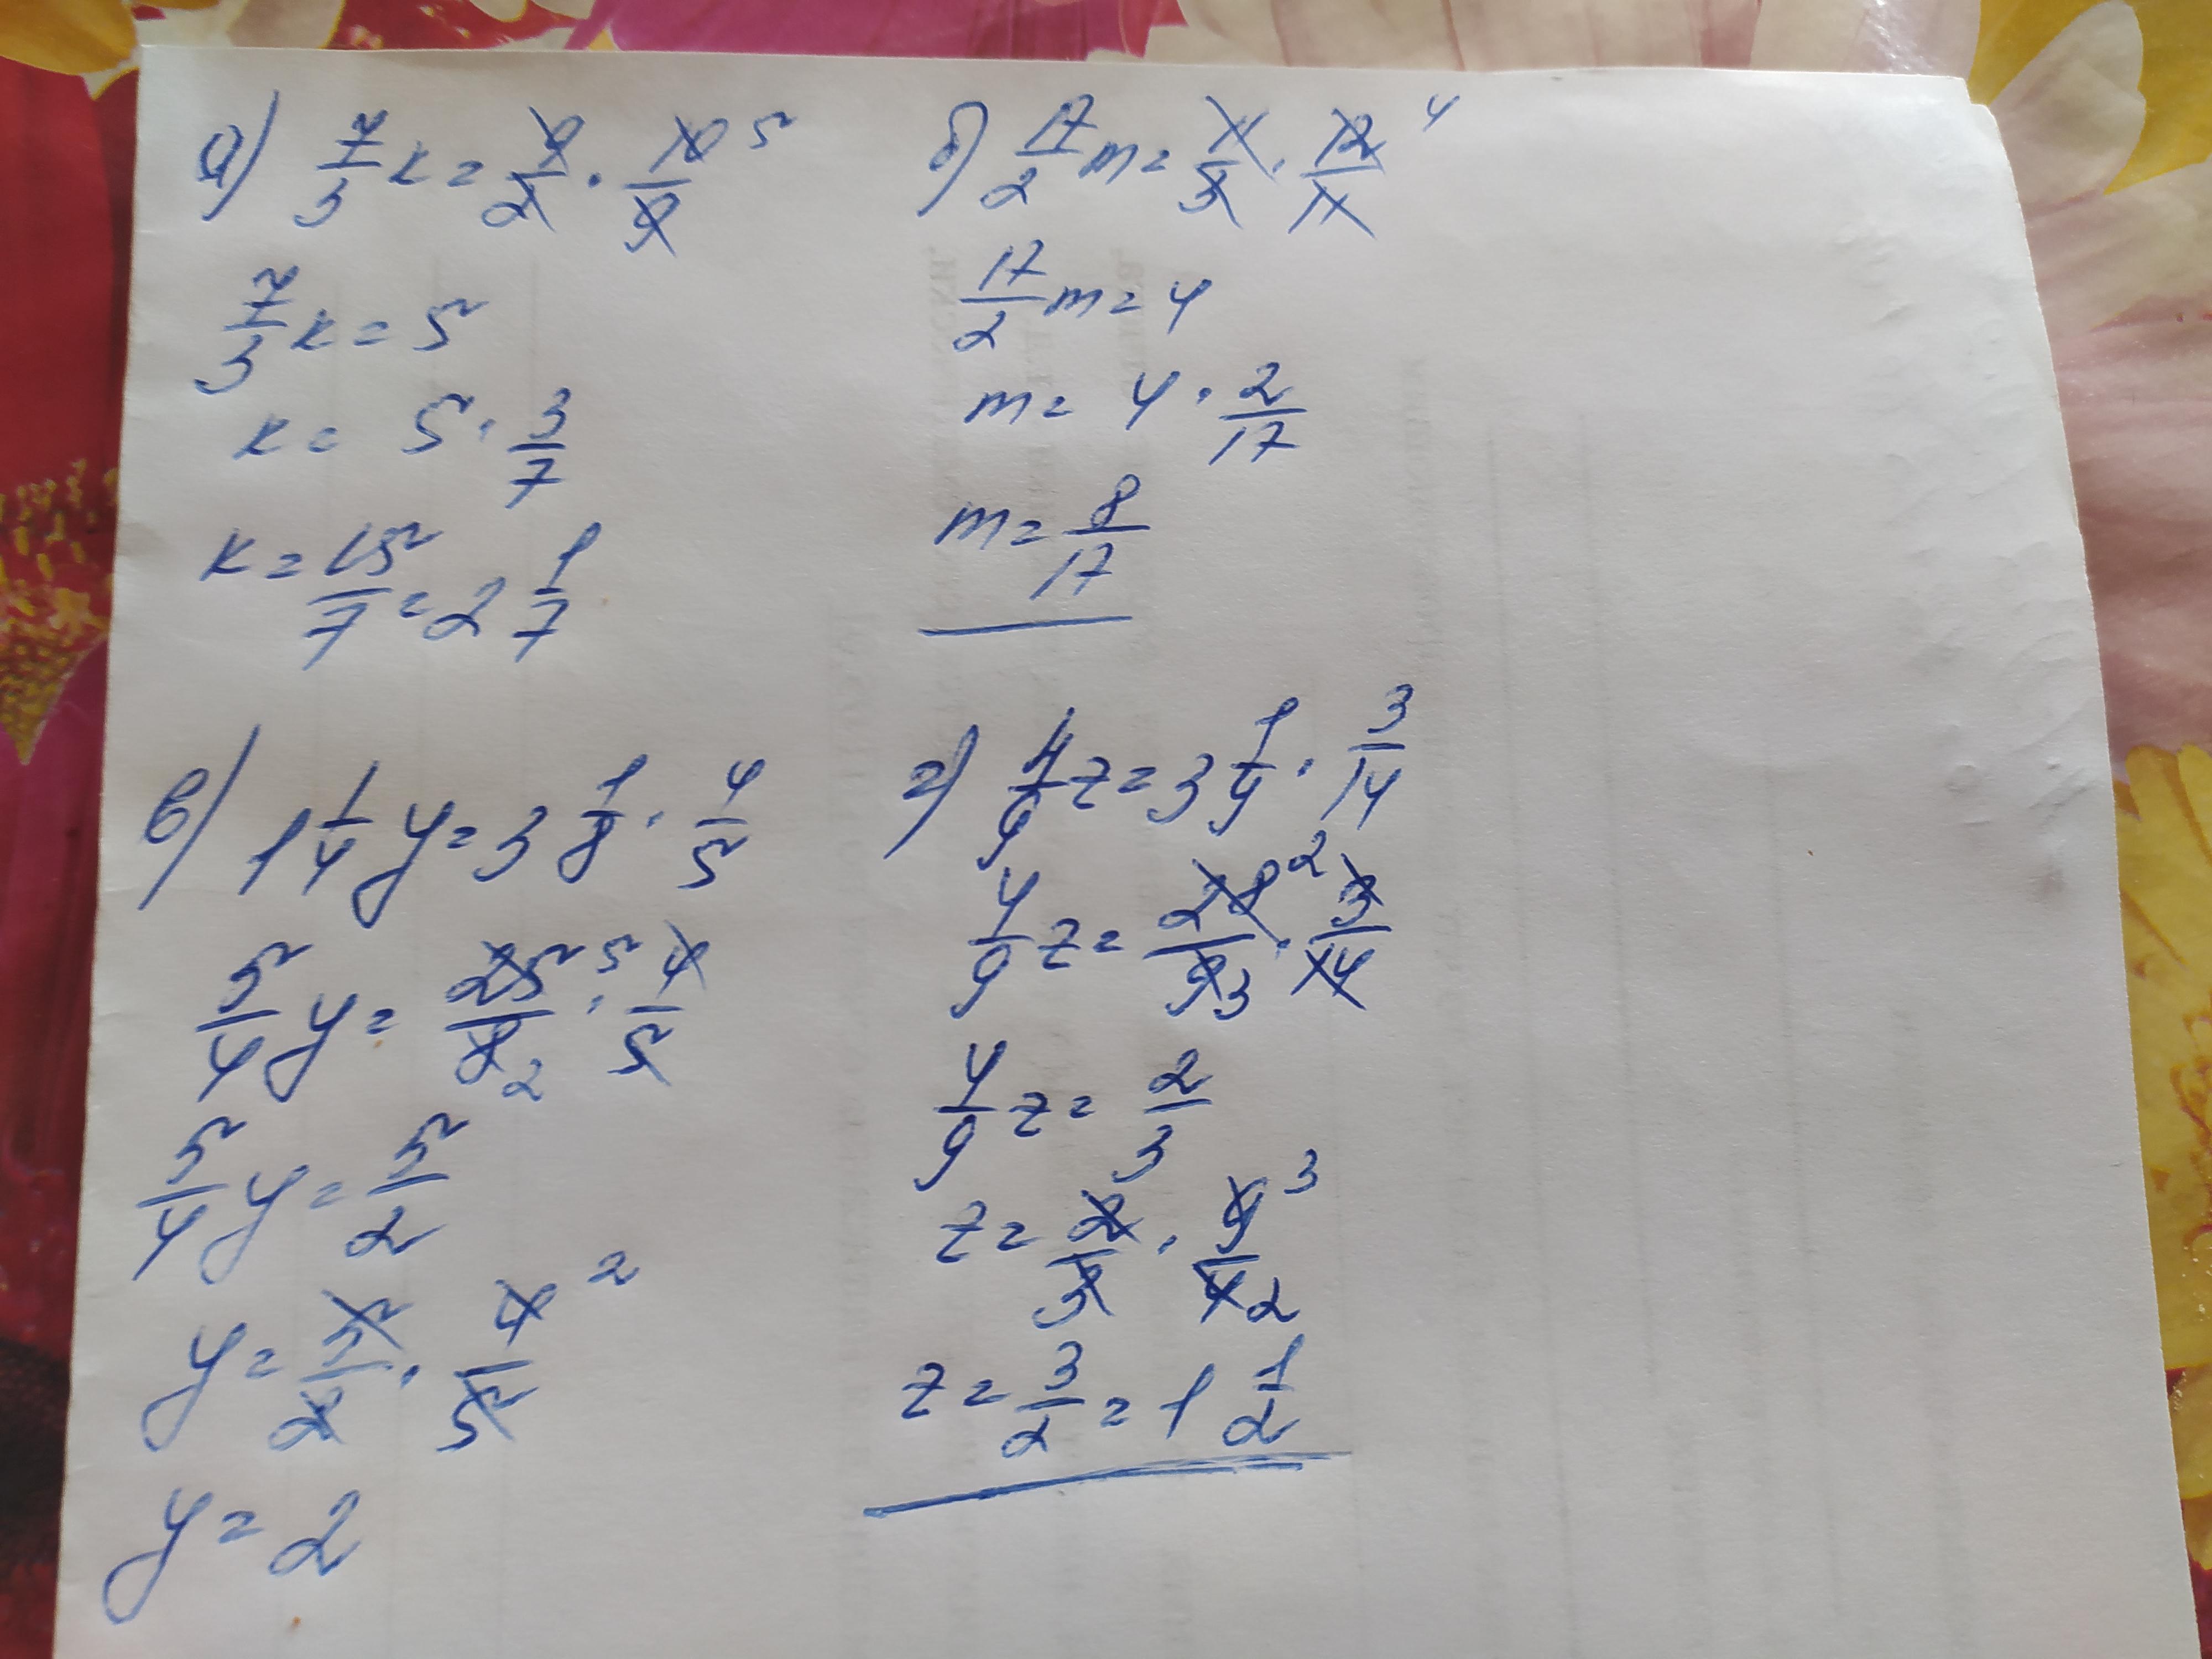 а) 7/3 к = 9/2 · 10/9 5
7/3 к = 5
к = 5 · 3/7
к = 15/7 = 2 1/7
б) 17/2 m = 11/3 · 12/11 4
17/2 m = 4
m = 4 · 2/17
m = 8/17
в) 1 1/4 y = 3 1/8 · 4/5
5/4 y = 25/8 5 2 · 4/5
5/4 y = 5/2
y = 5/2 · 4/5 2
y = 2
г) 4/9 z = 3 1/9 · 3/14
4/9 z = 28/9 2 3 · 3/14
4/9 z = 2/3
z = 2/3 · 9/4 3 2
z = 3/2 = 1 1/2